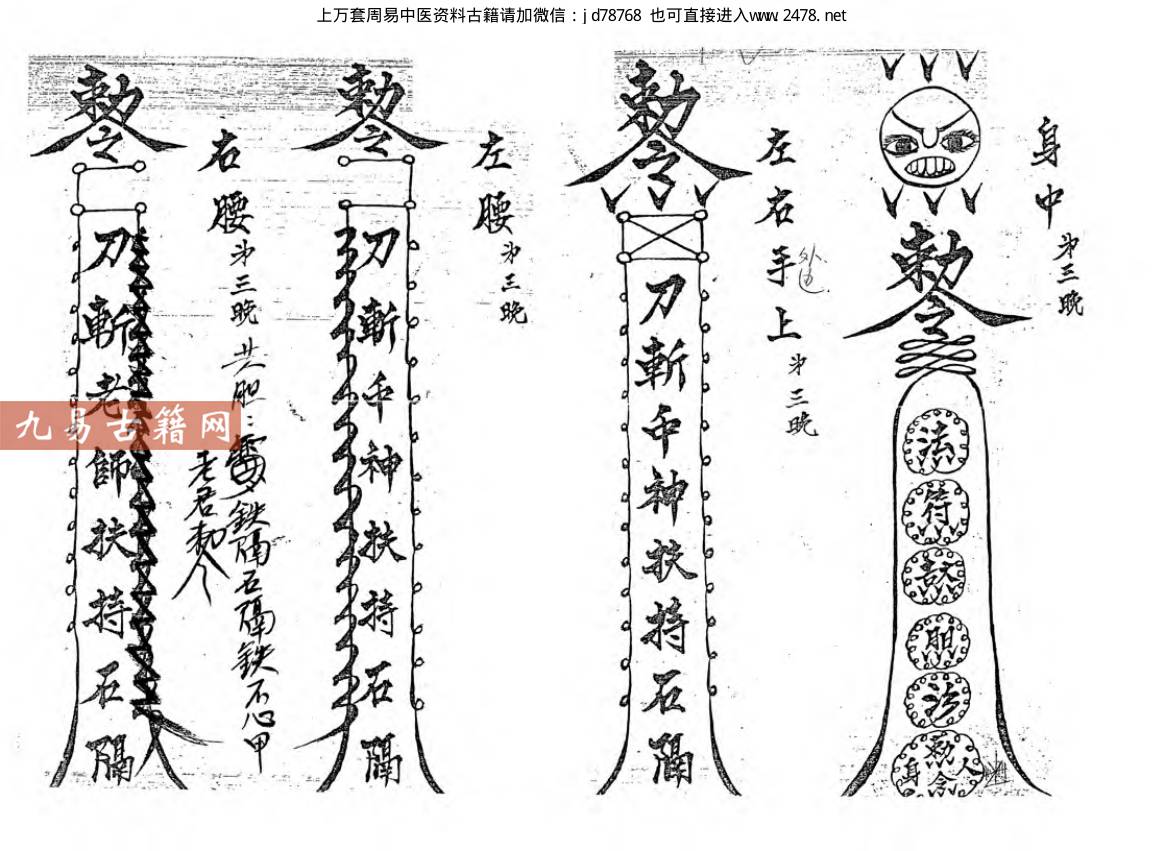 上万套周易中医资料古籍请加微信：jd78768 也可直接进入www.2478.net
身中
第三晚
勅令
法
符
胆
法
勅令
身
人
左右手上
外边
第三晚
勅令
刀斬千神扶持石隔
左腰
第三晚
勅令
刀斬千神扶持石隔
右腰
第三晚
共胆
鉄隔石隔鉄石心甲
老君勅令
勅令
刀斬老師扶持石隔
九易古籍网